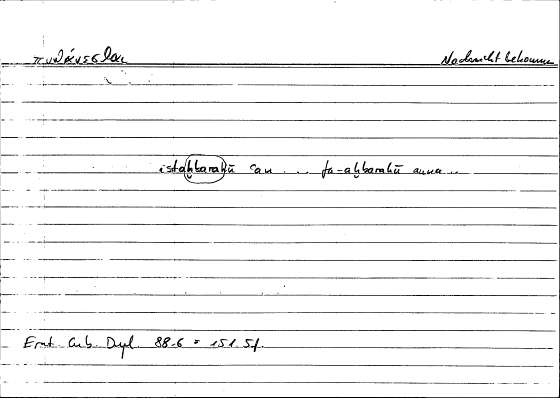 πυνθάνεσθαι Nachricht bekommen
istaḫbarahū ʿan ... fa-aḫbarahū anna ...
Erat. Cub. Diyl. 88.6 = 151.5f.